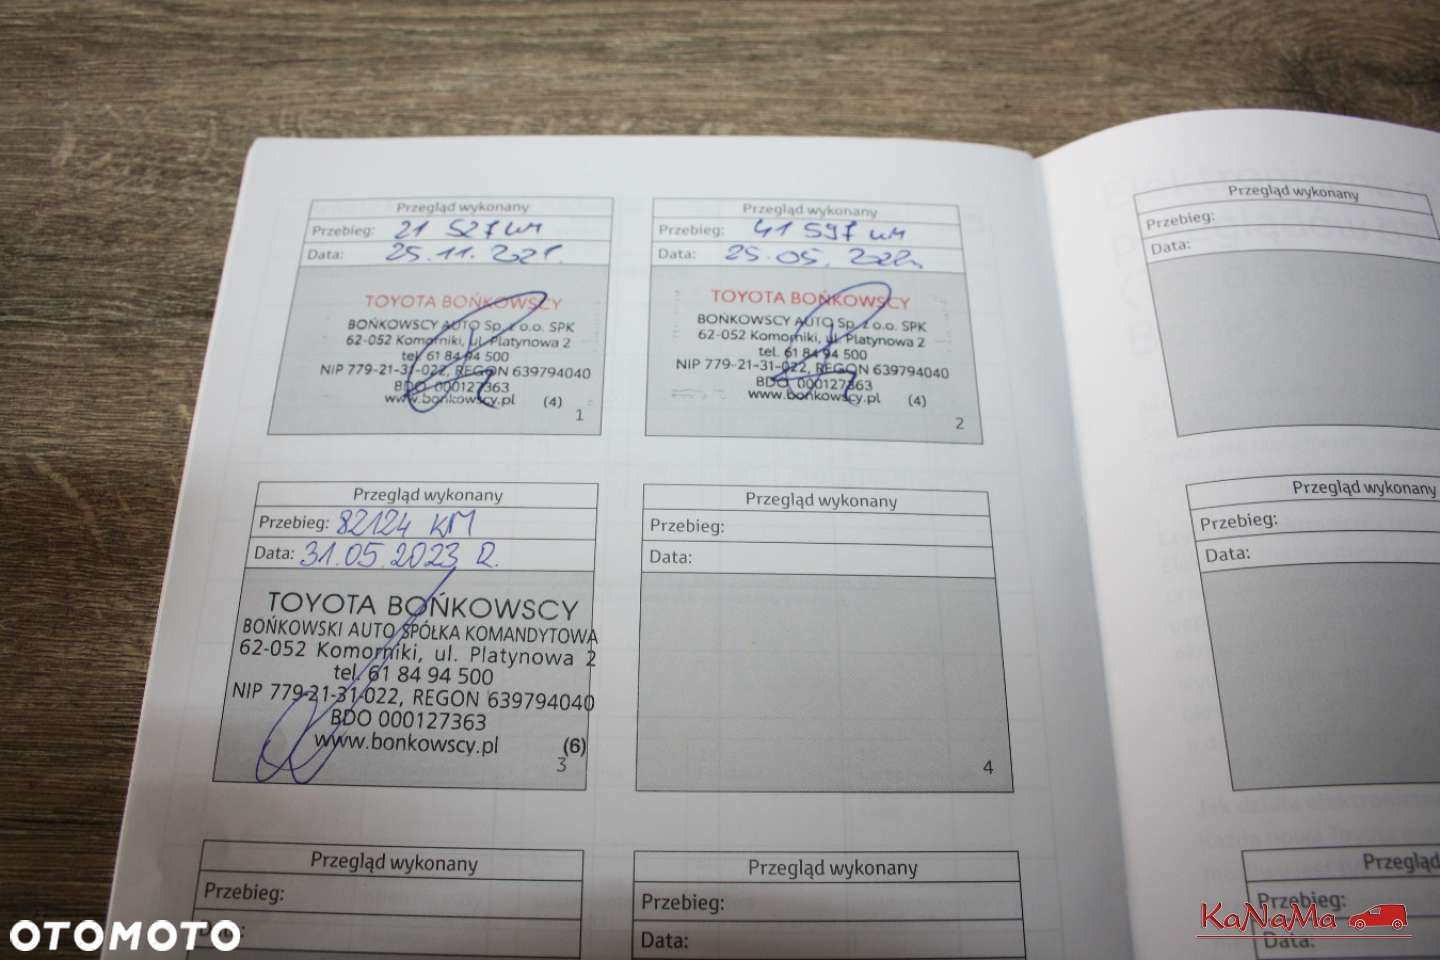 Przegląd wykonany
Przebieg: 21 527 KM
Data: 25.11.2021.
TOYOTA BOŃKOWSCY
BOŃKOWSCY AUTO Sp. z o.o. SPK
62-052 Komorniki, ul. Platynowa 2
tel. 61 84 94 500
NIP 779-21-31-022, REGON 639794040
BDO 000127363
www.bonkowscy.pl (4)
1
Przegląd wykonany
Przebieg: 41 597 KM
Data: 25.05.2022r.
TOYOTA BOŃKOWSCY
BOŃKOWSCY AUTO Sp. z o.o. SPK
62-052 Komorniki, ul. Platynowa 2
tel. 61 84 94 500
NIP 779-21-31-022, REGON 639794040
BDO 000127363
www.bonkowscy.pl (4)
2
Przegląd wykonany
Przebieg:
Data:
Przegląd wykonany
Przebieg: 82124 KM
Data: 31.05.2023 R.
TOYOTA BOŃKOWSCY
BOŃKOWSKI AUTO SPÓŁKA KOMANDYTOWA
62-052 Komorniki, ul. Platynowa 2
tel. 61 84 94 500
NIP 779-21-31-022, REGON 639794040
BDO 000127363
www.bonkowscy.pl (6)
3
Przegląd wykonany
Przebieg:
Data:
4
Przegląd wykonany
Przebieg:
Data:
Przegląd wykonany
Przebieg:
Data:
Przegląd wykonany
Przebieg:
Data:
Przegląd
Przebieg:
Data:
OTOMOTO
KaNaMa